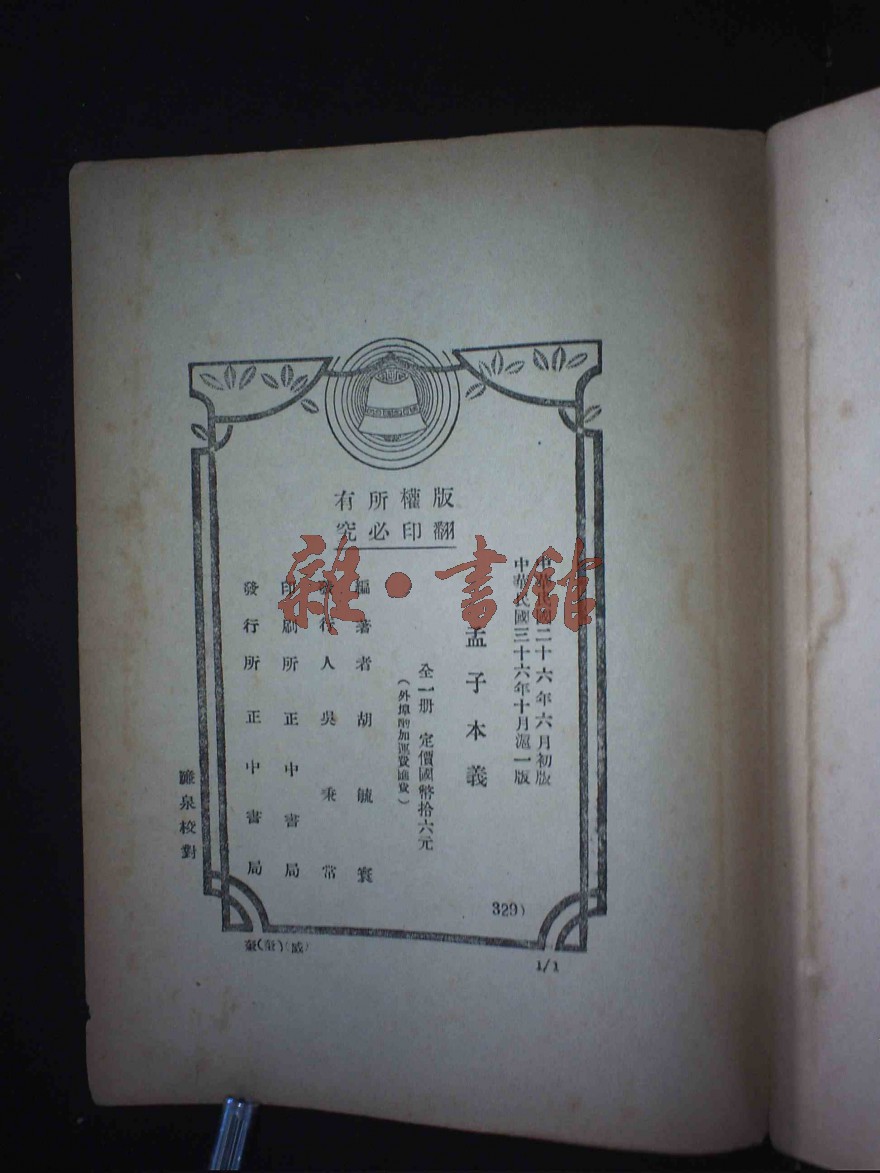 版權所有
翻印必究
中華民國二十六年六月初版
中華民國三十六年十月滬一版
孟子本義
全一册 定價國幣拾六元
（外埠酌加運費匯費）
編著者 胡毓寰
發行人 吳秉常
印刷所 正中書局
發行所 正中書局
校對
329)
1/1
雜·書館